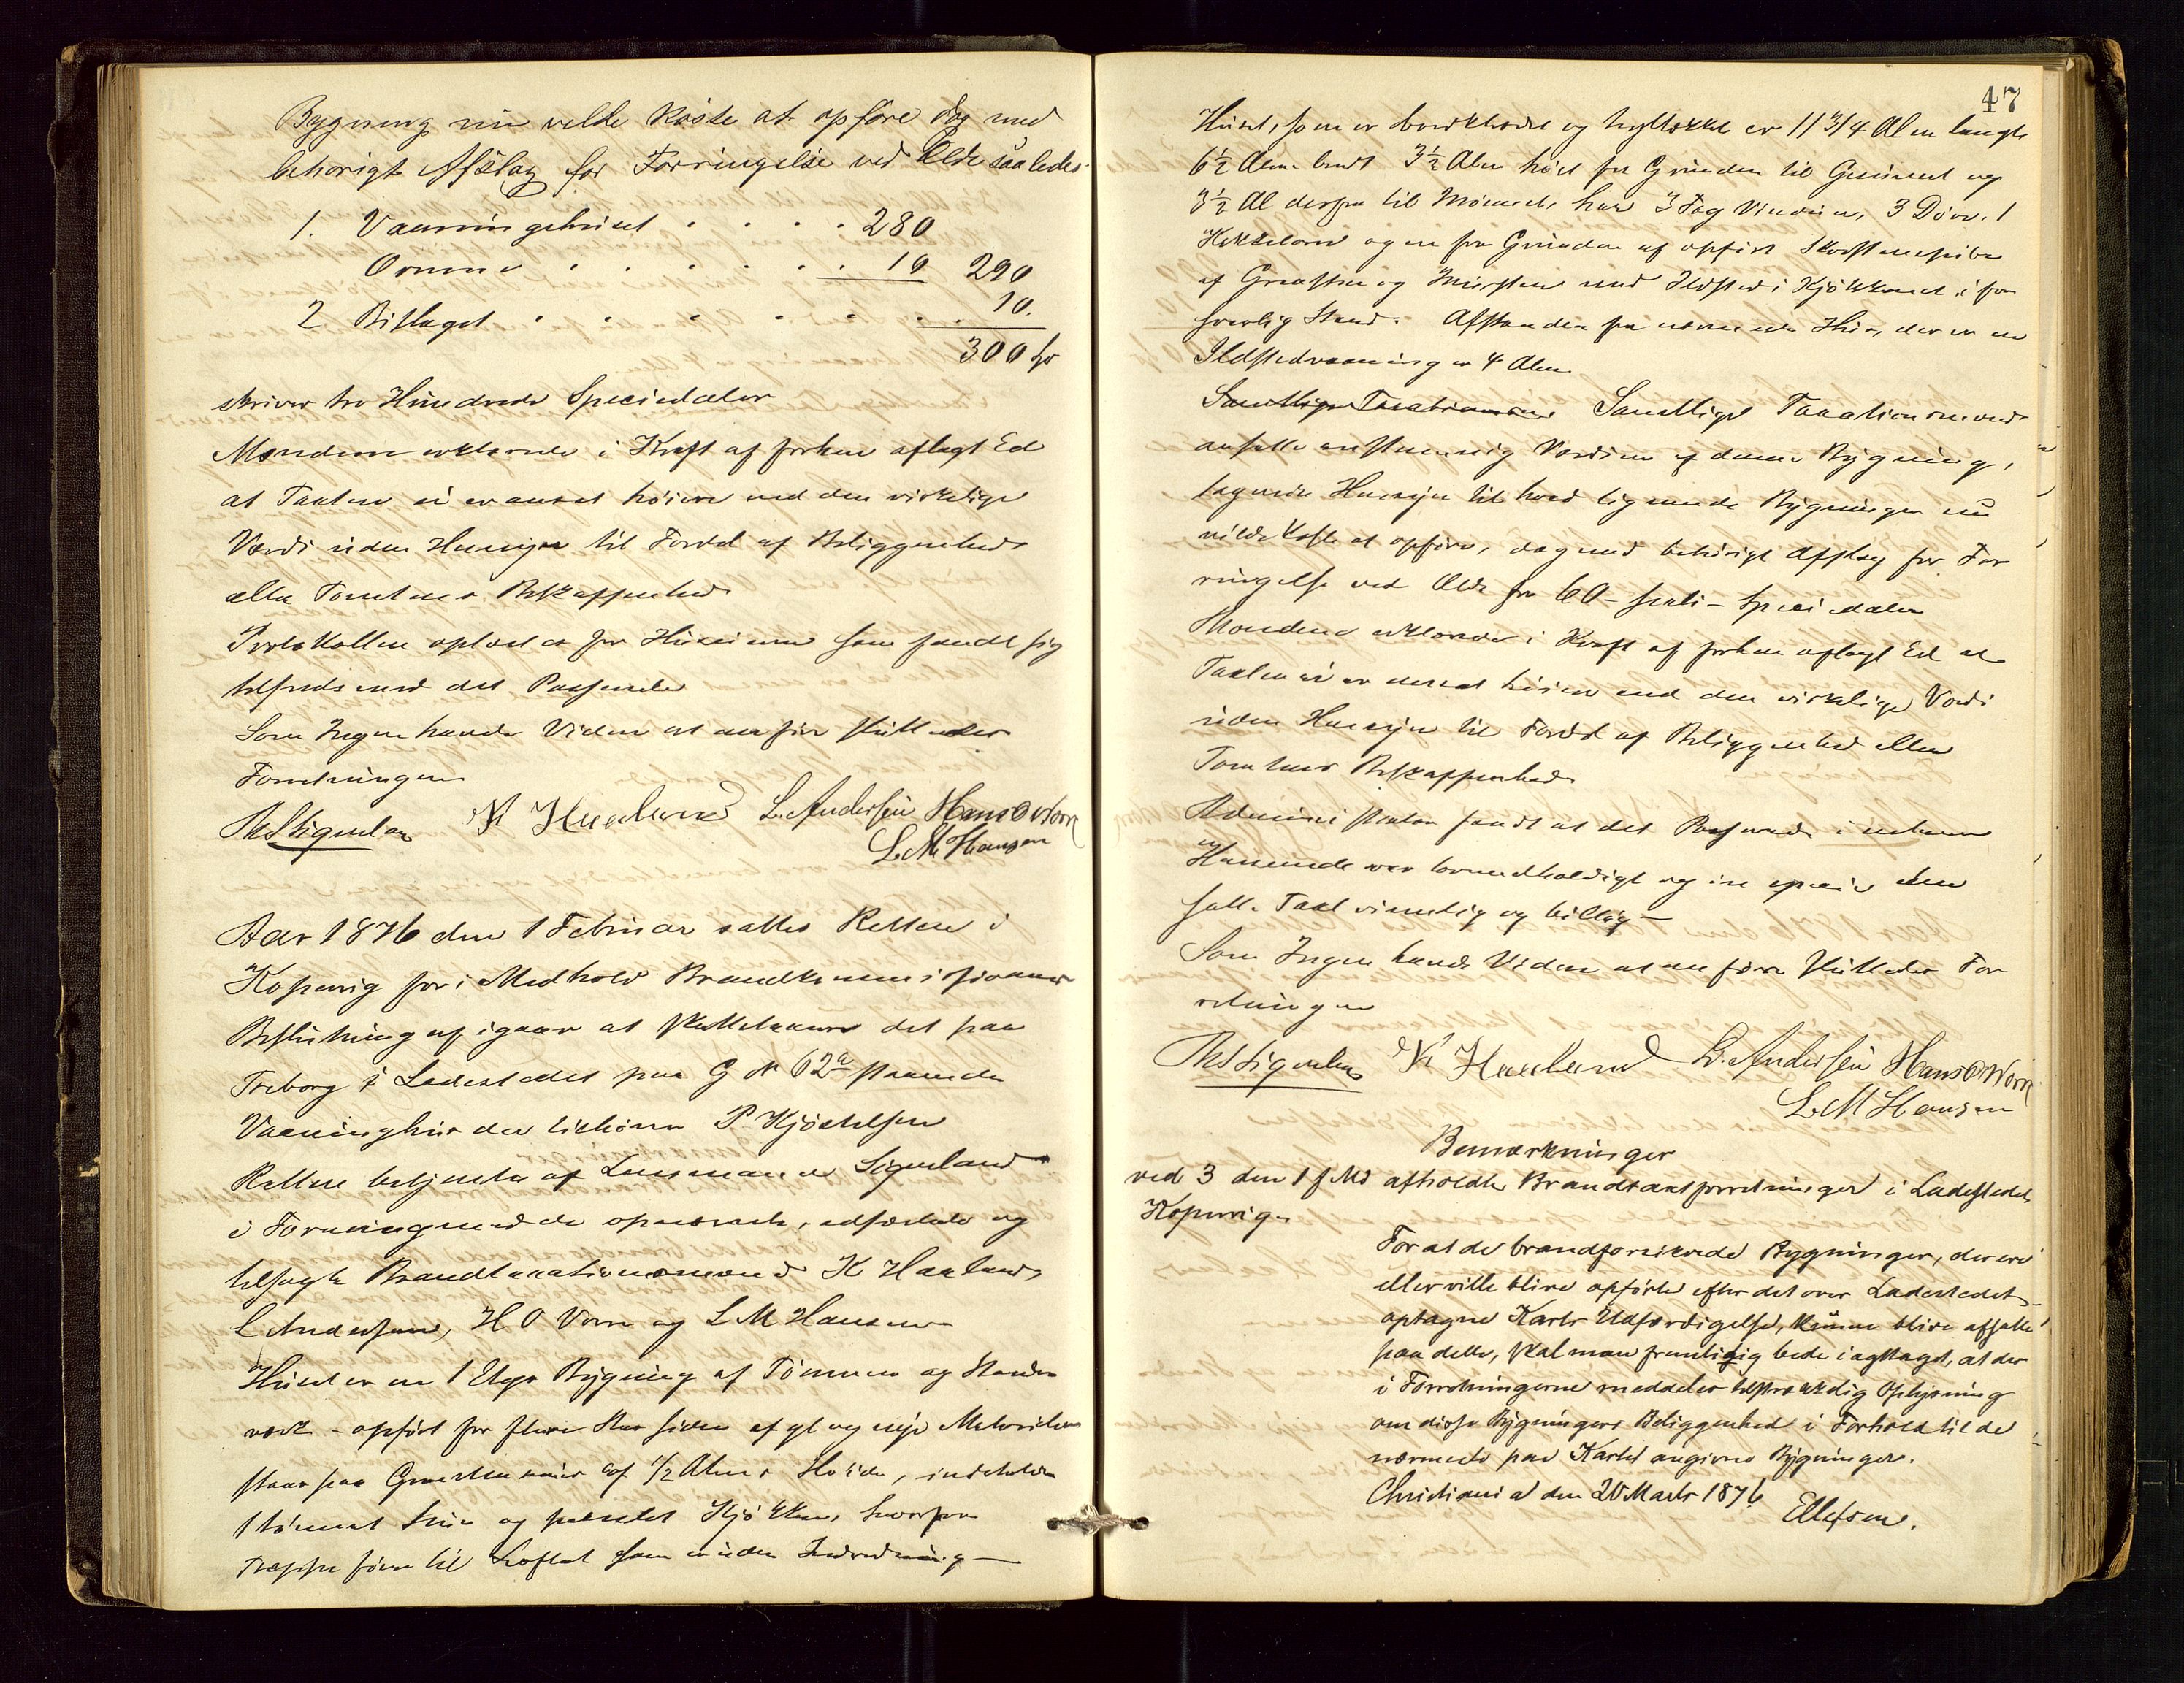 Bygning nu vilde koste at opføre dog med
behørigt Afslag for Forringelse ved Ælde saaledes
1. Vaaningshuset . . . . 280
Ovnene . . . . . . 10 290
2 Bislaget . . . . . . 10.
300 Sp
skriver tre Hundrede Speciedaler
Mændene erklærede i Kraft af forhen aflagt Ed
at Taxten ei er ansat høiere end den virkelige
Værdi uden Hensyn til Fordel af Beliggenhed
eller Tomtens Beskaffenhed
Protokollen oplæst for Huseieren som fandt sig
tilfreds med det Passerede
Som Ingen havde Videre at anføre sluttedes
Forretningen
K Haaland L. Andersen Hans O Vorre
L. M Hansen
Aar 1876 den 1 Februar sattes Retten i
Kopervig for i Medhold Brandkommissionens
Beslutning af igaar at skattetaxere det paa
Treborg i Ladestedet paa G N 62a staaende
Vaaningshus der tilhører P. Kjøstelsen
Retten betjentes af Lensmand Sigveland
i Foreningmed de opnævnte, edfæstede og
tilsagte Brandtaxationsmænd K Haaland,
L Andersen, H O Vorre og L M Hansen
Huset er en 1 Etages Bygning af Tømmer og Stender
værk - opført for flere Aar siden af gl og nye Materialier
staar paa Graastensmur af 1/2 Alens Høide, indeholder
1 tømret Stue og panelet Kjøkken, hvorfra
Trappe fører til Loftet som er uden Indredning -
47
Huset, som er bordklædt og teglhækket er 11 3/4 Alen langt
6½ Alen bredt 3½ Alen høit fra Grunden til Gesimset og
3½ Al derfra til Mønnet, har 3 Fag Vinduer, 3 Døre, 1
og en fra Grunden af opført Skorstenspibe
af Graasten og Mursten med Ildsted i Kjøkkenet i for
svarlig Stand. Afstanden fra nærmeste Hus, der er en
Ildstedvaaning er 4 Alen
Samtlige Taxationsmænd Samtlige Taxationsmænd
ansatte enstemmig Værdien af denne Bygning,
tagende Hensyn til hvad lignende Bygninger nu
vilde koste at opføre, dog med behørigt Afslag for For
ringelse ved Ælde for 60 - sexti - Speciedaler
Mændene erklærede i Kraft af forhen aflagt Ed at
Taxten ei er ansat høiere end den virkelige Værdi
uden Hensyn til Fordel af Beliggenhed eller
Tomtens Beskaffenhed
Administrator fandt at det Passerede i
og
var og den
satte Taxt rimelig og billig -
Som Ingen havde Videre at anføre sluttedes For
retningen
K Haaland L. Andersen Hans O Vorre
L. M Hansen
Bemærkninger
ved 3 den 1 f Md afholdte Brandtaxtforretninger i Ladestedet
Kopervig.
For at de brandforsikrede Bygninger, der ere
eller ville blive opførte efter det over Ladestedet
optagne Karts Udfærdigelse, kunne blive afsatte
paa dette, skal man fremtidig bede iagttaget, at der
i Forretningerne meddeles tilstrækkelig Oplysning
om disse Bygningers Beliggenhed i Forhold til de
nærmeste paa Kartet angivne Bygninger.
Christiania den 20 Marts 1876
Ellefsen.